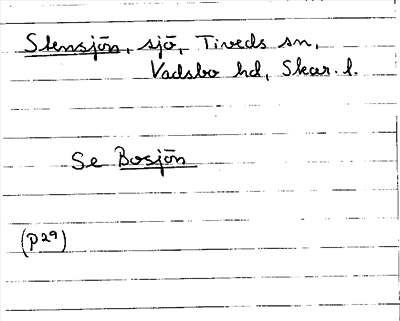 Stensjön, sjö, Tiveds sn,
Vadsbo hd, Skar. l.
Se Bosjön
(p29)